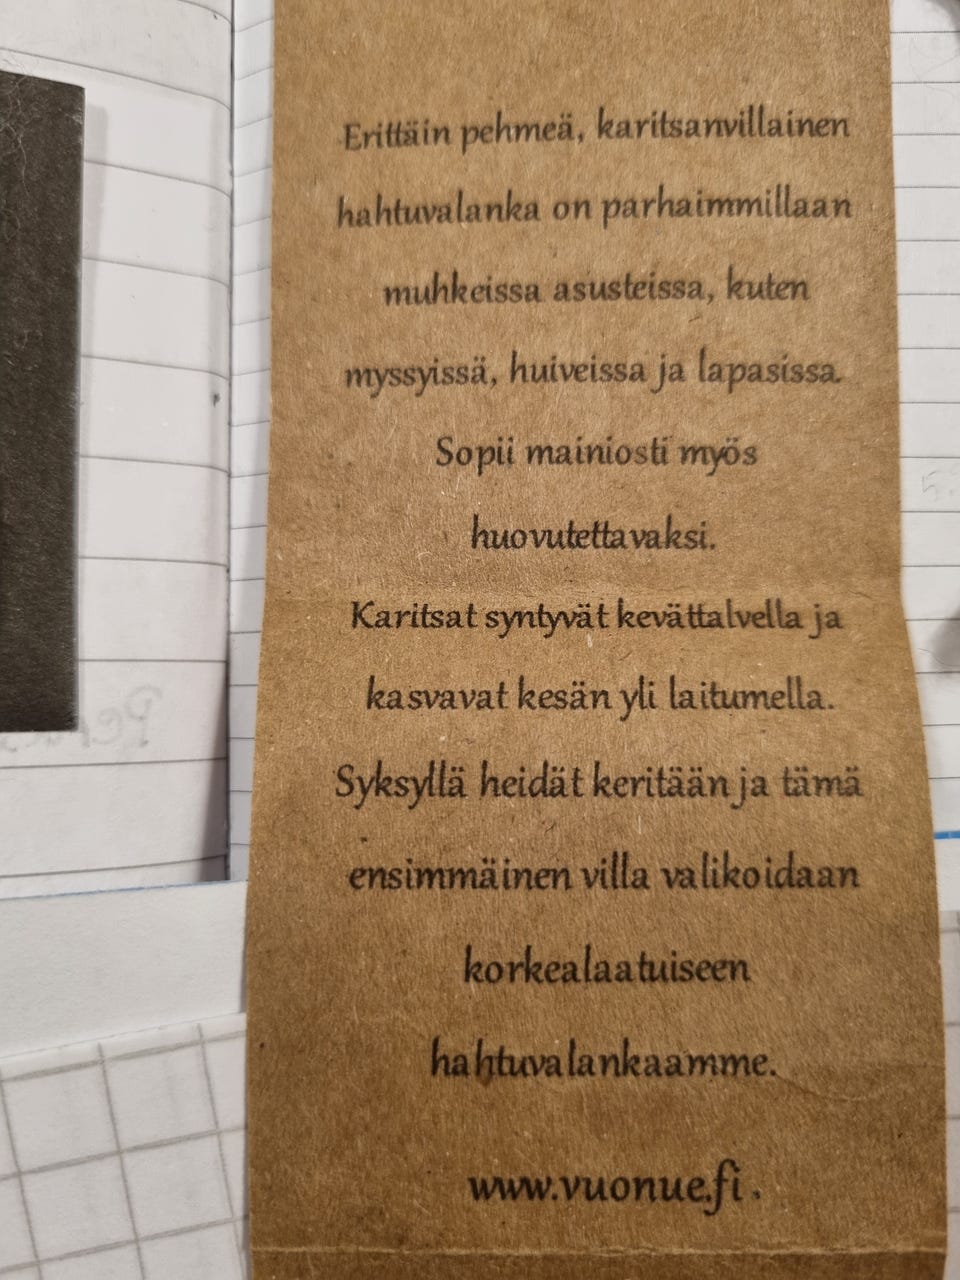 Erittäin pehmeä, karitsanvillainen
hahtuvalanka on parhaimmillaan
muhkeissa asusteissa, kuten
myssyissä, huiveissa ja lapasissa.
Sopii mainiosti myös
huovutettavaksi.
Karitsat syntyvät kevättalvella ja
kasvavat kesän yli laitumella.
Syksyllä heidät keritään ja tämä
ensimmäinen villa valikoidaan
korkealaatuiseen
hahtuvalankaamme.
www.vuonue.fi